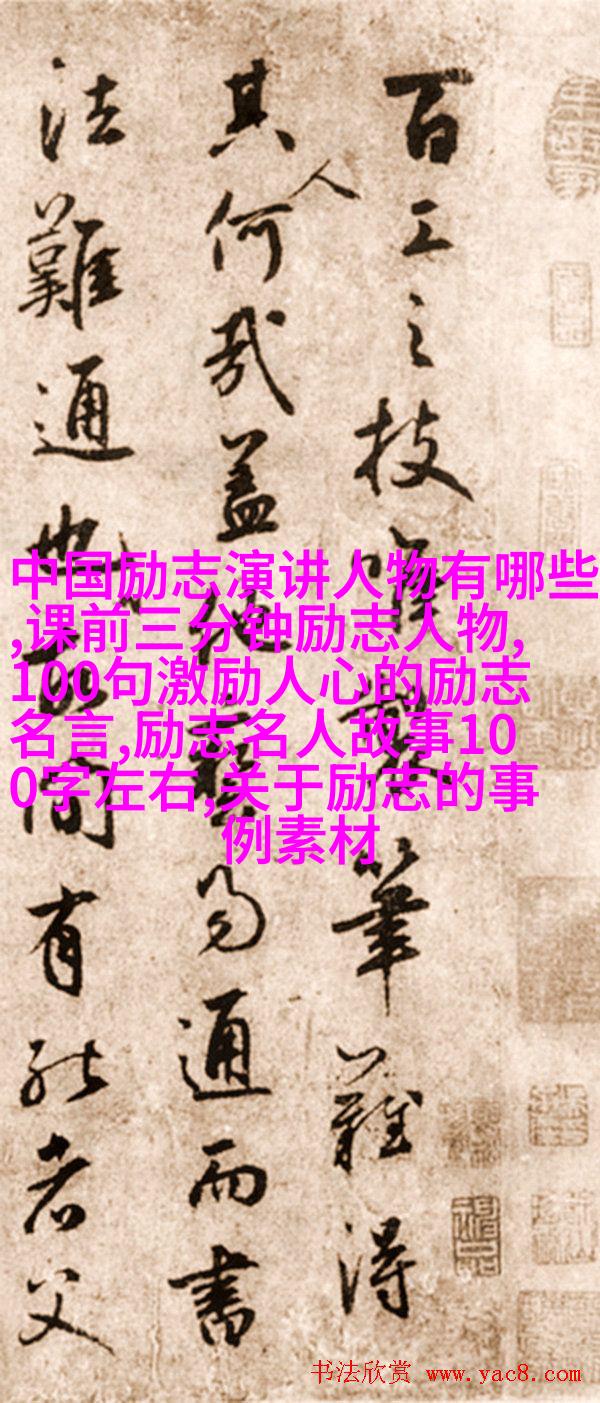 百工之技唯筆難得
其人何哉蓋易通而書
法難通也間有能者父
中国励志演讲人物有哪些
,课前三分钟励志人物,
100句激励人心的励志
名言,励志名人故事10
0字左右,关于励志的事
例素材
书法欣赏 www.yac8.com